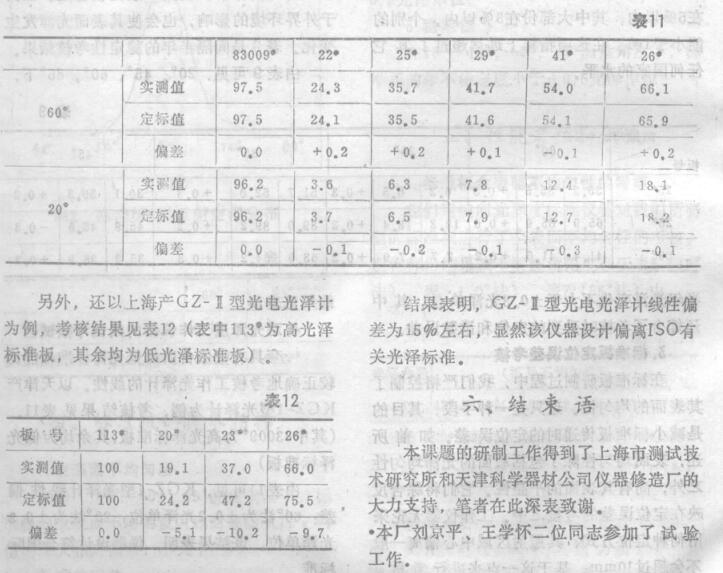 表11
83009# 22# 25# 29# 41# 26#
60° 实测值 97.5 24.3 35.7 41.7 54.0 66.1
定标值 97.5 24.1 35.5 41.6 54.1 65.9
偏差 0.0 +0.2 +0.2 +0.1 -0.1 +0.2
20° 实测值 96.2 3.6 6.3 7.8 12.4 18.1
定标值 96.2 3.7 6.5 7.9 12.7 18.2
偏差 0.0 -0.1 -0.2 -0.1 -0.3 -0.1
另外，还以上海产GZ-Ⅱ型光电光泽计
为例，考核结果见表12（表中113#为高光泽
标准板，其余均为低光泽标准板）。
表12
板号 113# 20# 23# 26#
实测值 100 19.1 37.0 66.0
定标值 100 24.2 47.2 75.5
偏差 0.0 -5.1 -10.2 -9.7
结果表明，GZ-Ⅱ型光电光泽计线性偏
差为15%左右，显然该仪器设计偏离ISO有
关光泽标准。
六、结束语
本课题的研制工作得到了上海市测试技
术研究所和天津科学器材公司仪器修造厂的
大力支持，笔者在此深表致谢。
·本厂刘京平、王学怀二位同志参加了试验
工作。